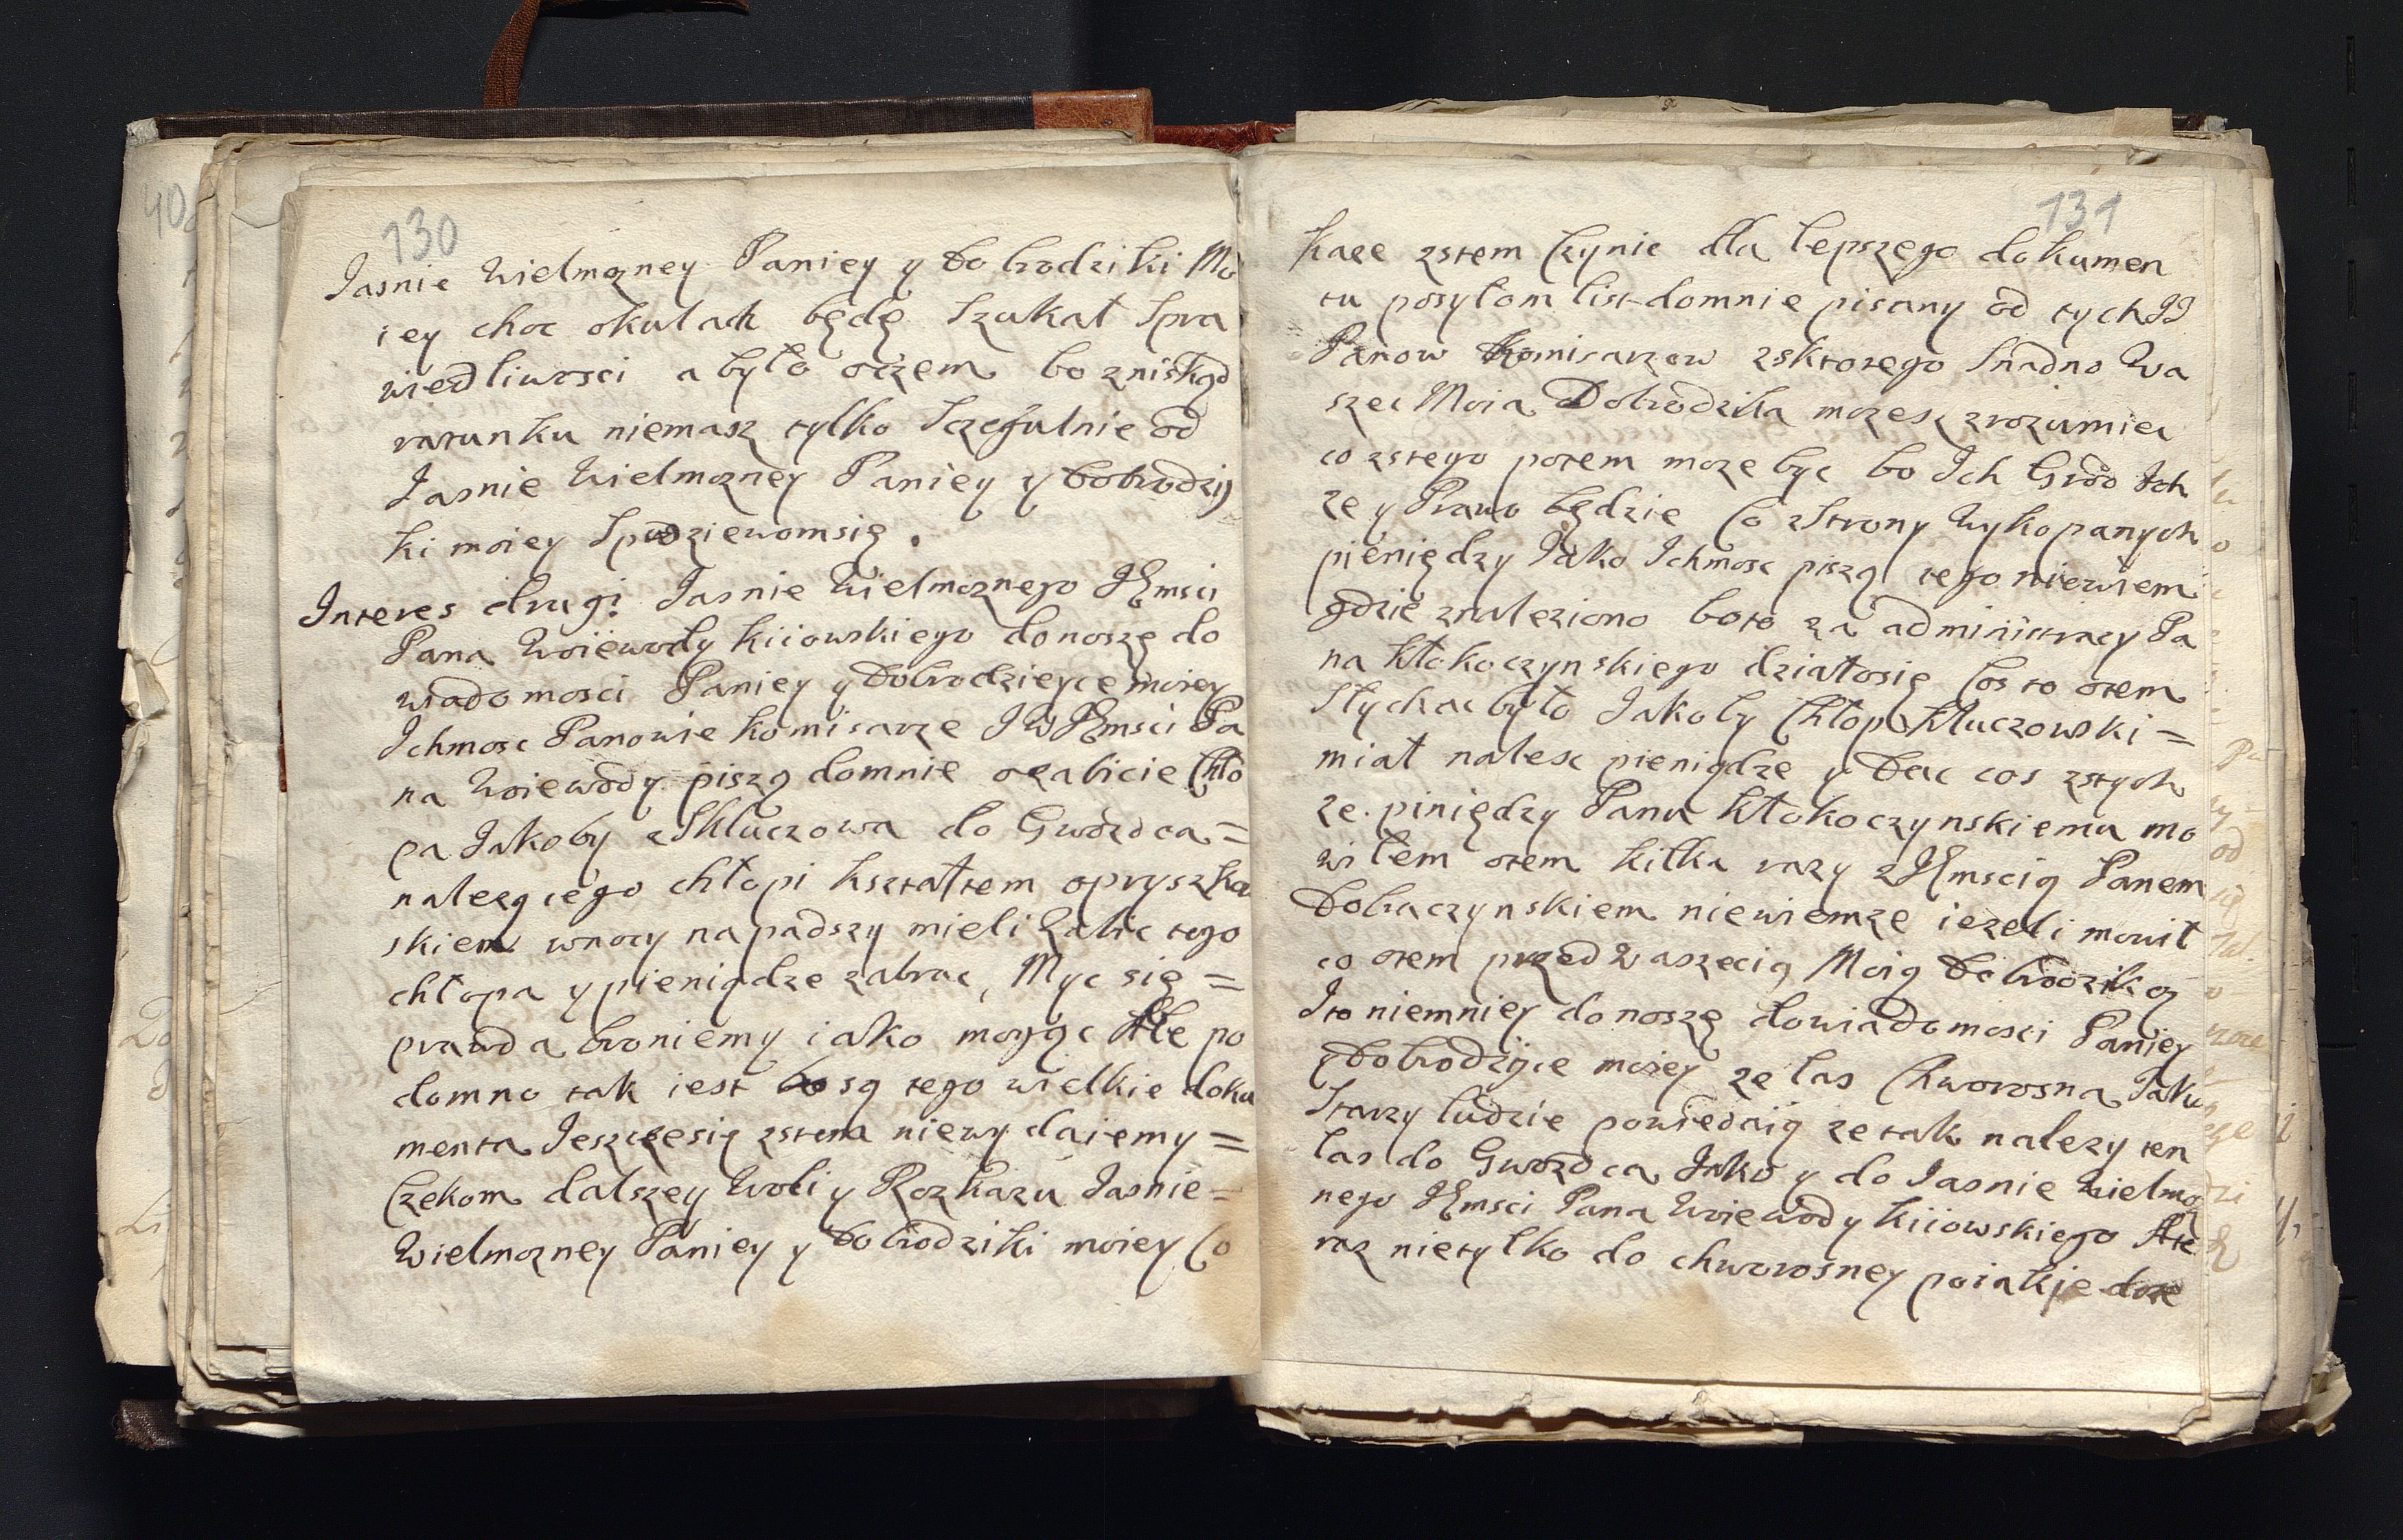 130
Jasnie Wielmozney Paniey y Dobrodziki Mo
iey choc okulach będę Szukał Spra
wiedliwosci a było oczem bo zniskąd
ratunku niemasz tylko Sczegulnie od
Jasnie Wielmozney Paniey y Dobrodziy
ki moiey Spodziewomsię.
Interes drugi Jasnie Wielmoznego JEmsci
Pana Woiewody kiiowskiego donoszę do
wiadomosci Paniey y Dobrodzieyce moiey
Ichmosc Panowie komisarze JW JEmsci Pa
na Woiewody piszą domnie ozabicie Chło
pa Jakoby zSkluczowa do Gwozdca =
nalezącego chłopi kształtem opryszko
skiem wnocy napadszy mieli Zabic tego
chłopa y pieniądze zabrac, Myc się =
prawda broniemy iako mogąc Ale po
domno tak iest bo są tego wielkie doku
menta Jeszczesię zstem niewydaiemy =
Czekom dalszey Woli y Rozkazu Jasnie =
Wielmozney Paniey y Dobrodziki moiey Co
131
kaze zstem Czynic dla lepszego dokumen
tu posyłom list domnie pisany od tych JJ
Panow Komisarzow zsktorego Snadno Wa
szec Moia Dobrodzika mozesz zrozumiec
co zstego potem moze byc bo Ich Grod Ich
ze y Prawo będzie Co zStrony Wykopanych
pieniędzy Jako Ichmosc piszą tego niewiem
gdzie znaleziono boto za administracy Pa
na Kłokoczynskiego działosię Cos to otem
Słychac było Jakoby Chłop Kluczowski =
miał nalesc pieniądze y Dac cos zstych
ze piniędzy Panu Kłokoczynskiemu mo
wiłem otem kilka razy zJEmscią Panem
Dobraczynskiem niewiemze iezeli mowił
co otem przed Waszecią Moią Dobrodziką
Ito niemniey donoszę dowiadomosci Paniey
y Dobrodziyce moiey ze las Chworosna Jako
Starzy ludzie powiedaią ze tak nalezy ten
las do Gwozdca Jako y do Jasnie Wielmoz
nego JEmsci Pana Woiewody kiiowskiego Ate
raz nietylko do chworosney poiakje doze